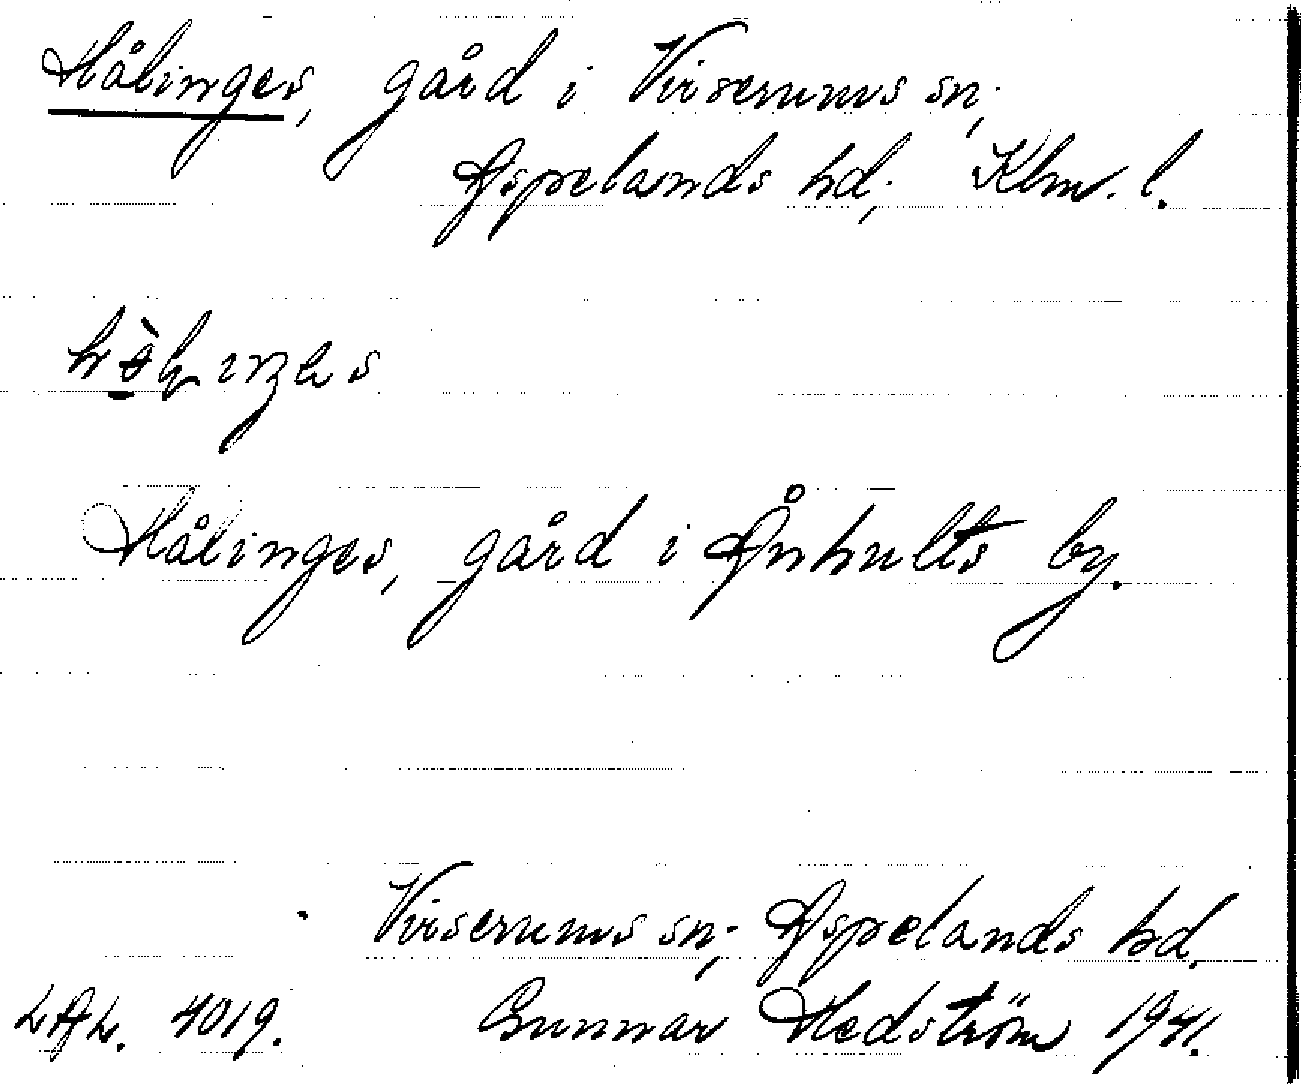 Hålinges, gård i Virserums sn;
Aspelands hd; Klm. l.
Hålinges, gård i Ånhults by.
Virserums sn; Aspelands hd.
LAL. 4019. Gunnar Hedström 1941.